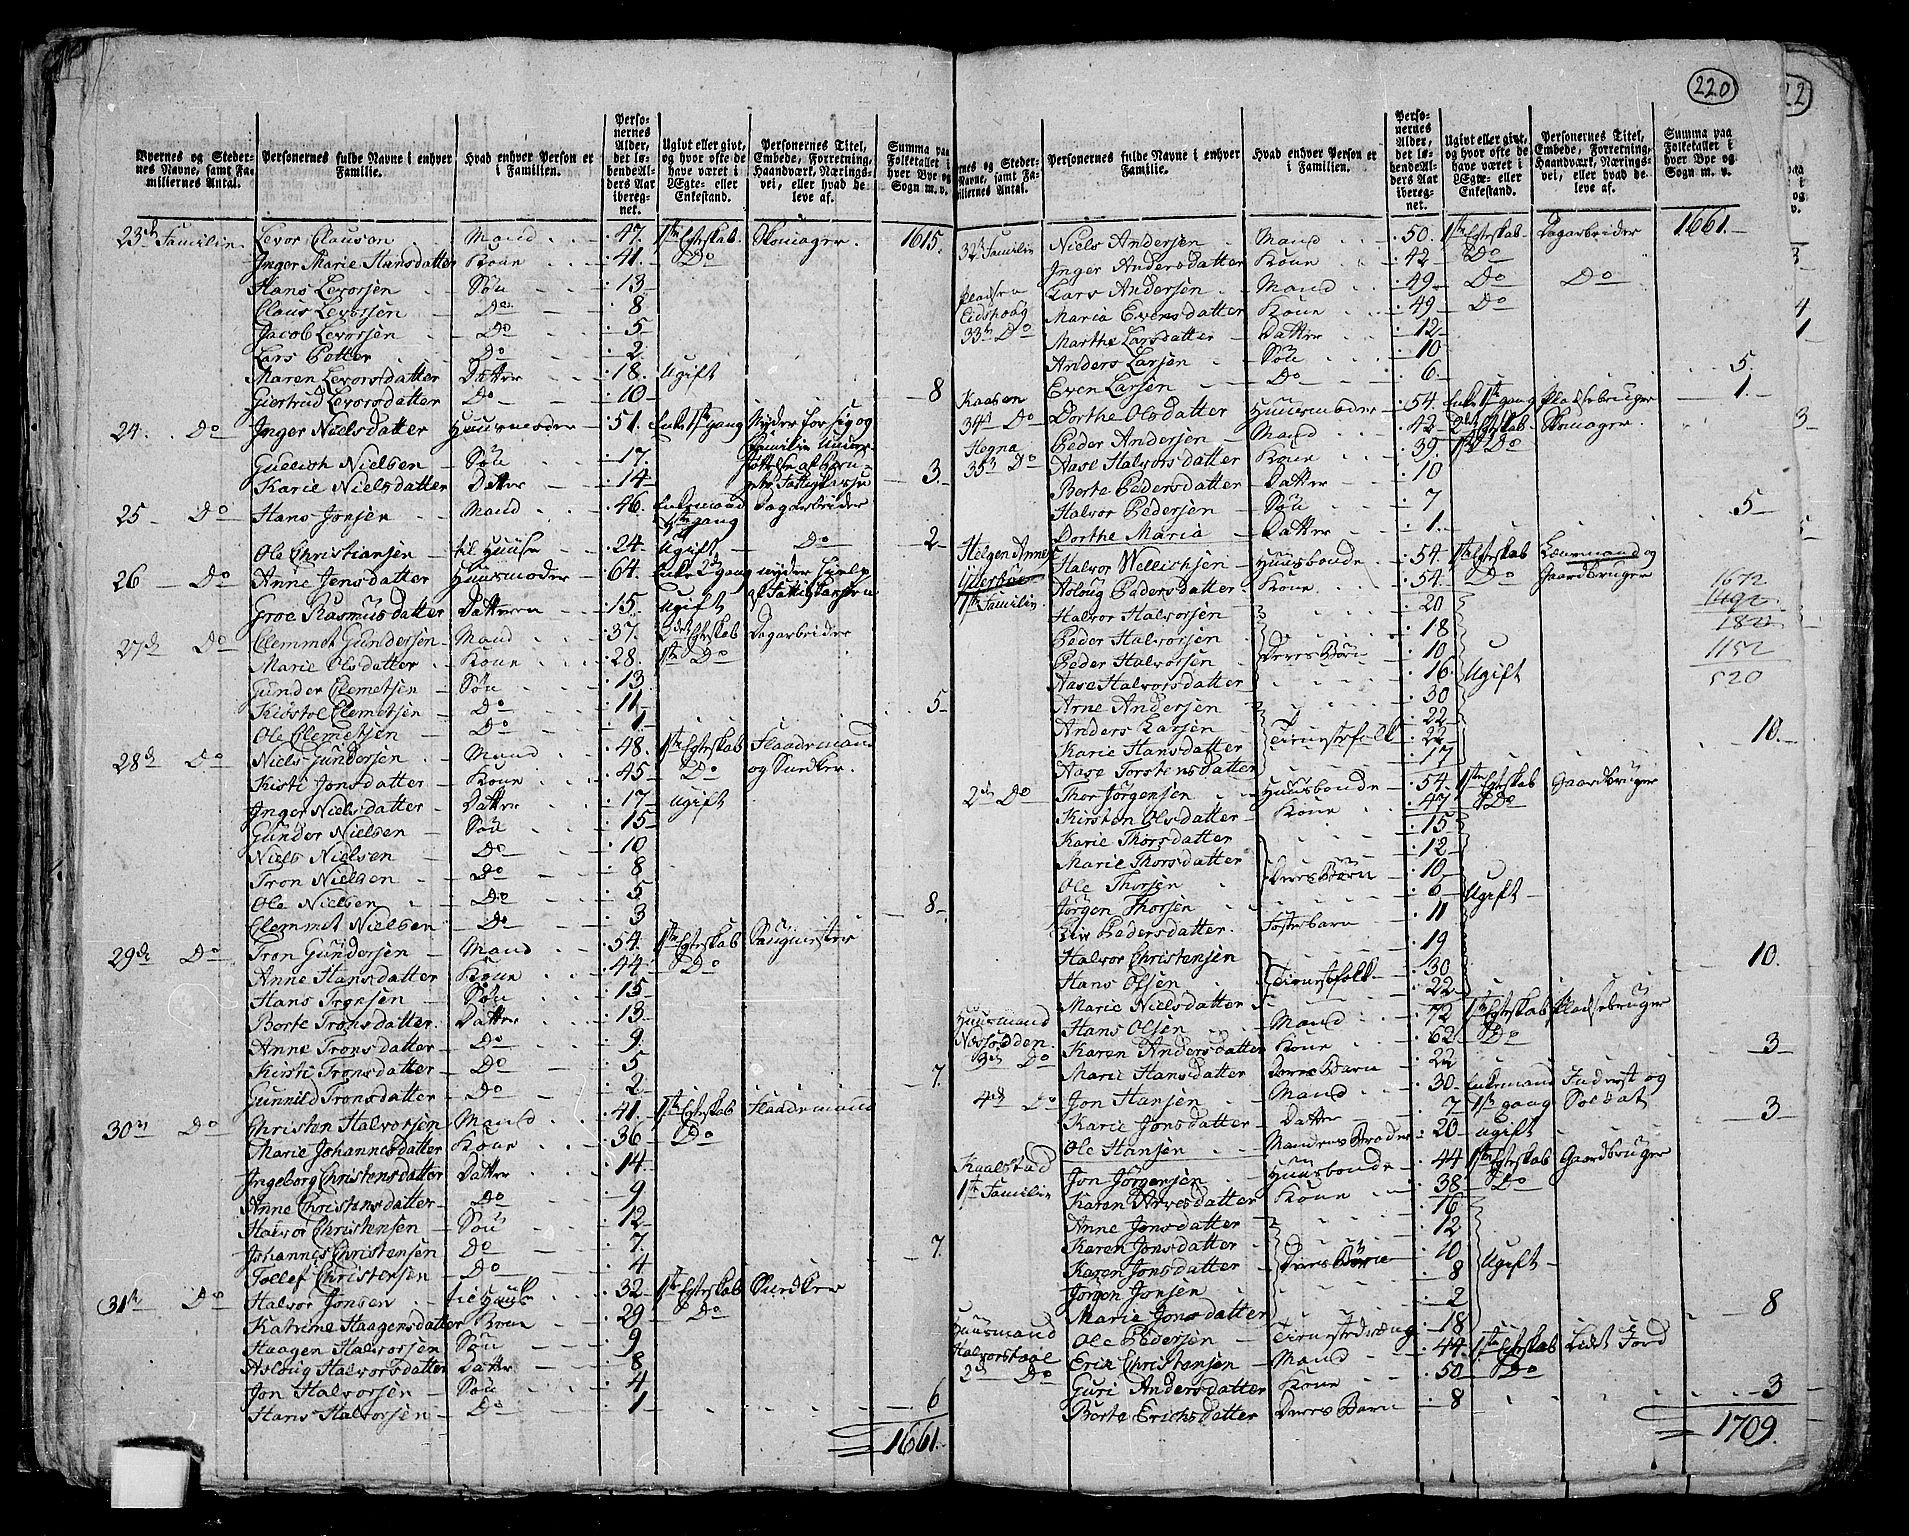 220
22
Byernes og Stedernes Navne, samt Familliernes Antal.
Personernes fulde Navne i enhver Familie.
Hvad enhver Person er i Familien.
Personernes Alder, det løbende Alders Aar iberegnet.
Ugivt eller givt, og hvor ofte de have været i Egte- eller Enkestand.
Personernes Titel, Embede, Forretning, Haandværk, Næringsvei, eller hvad de leve af.
Summa paa Folketallet i hver Bye og Sogn m. v.
23de Familie Levor Clausen Mand 47. 1ste Egteskab Skomager. 1615.
Inger Marie Hansdatter Kone 41. Do
Hans Levorsen Søn 13
Claus Levorsen Do 8
Jacob Levorsen Do 5
Lars Do 2
Maren Levorsdatter Datter 18. Ugift
Giertrud Levorsdatter Do 10 8
24. Do Inger Nielsdatter Huusmoder 51. Enke 1ste gang Nyder for sig og
Familie Under-
Gullich Nielsen Søn 17.
Karie Nielsdatter Datter 14 3
25 Do Hans Jonsen Mand 46. Enkemand 1ste gang Dagarbeider
Ole Christiansen til Huuse 24 Ugift Do 2
26 Do Anne Jensdatter Huusmoder 64. Enke 2den gang nyder Hielp
Groe Rasmusdatter Datteren 15. Ugift
27de Do Clemmet Gundersen Mand 37. 2det Egteskab Dagarbeider
Marie Olsdatter Kone 28. 1ste Do
Gunder Clemetsen Søn 13
Kiøstol Clemetsen Do 11 5
Ole Clemetsen Do 1
28de Do Niels Gundersen Mand 48. 1ste Egteskab Flaademand
Kisti Jonsdatter Kone 45 Do og Snedker.
Inger Nielsdatter Datter 17 Ugift
Gunder Nielsen Søn 15
Niels Nielsen Do 10
Tron Nielsen Do 8
Ole Nielsen Do 5 8
Clemmet Nielsen Do 3
29de Do Tron Gundersen Mand 54. 1ste Egteskab Saugmester
Anne Hansdatter Kone 44 Do
Hans Tronsen Søn 15
Borte Tronsdatter Datter 13
Anne Tronsdatter Do 9
Kirsti Tronsdatter Do 5 7.
Gunnild Tronsdatter Do 2
30te Do Christen Halvorsen Mand 41. 1ste Egteskab Flaademand
Marie Johannesdatter Kone 36 Do
Ingeborg Christensdatter Datter 14
Anne Christensdatter Do 9
Halvor Christensen Søn 12
Johannes Christensen Do 7. 7.
Tollef Christensen Do 4
31te Do Halvor Jonsen til Huuse 32 1ste Egteskab Snedker
Katrine Haagensdatter Kone 29 Do
Haagen Halvorsen Søn 9
Asloug Halvorsdatter Datter 8
Jon Halvorsen Søn 4
Hans Halvorsen Do 1 6
1661.
Byernes og Stedernes Navne, samt Familliernes Antal.
Personernes fulde Navne i enhver Familie.
Hvad enhver Person er i Familien.
Personernes Alder, det løbende Alders Aar iberegnet.
Ugivt eller givt, og hvor ofte de have været i Egte- eller Enkestand.
Personernes Titel, Embede, Forretning, Haandværk, Næringsvei, eller hvad de leve af.
Summa paa Folketallet i hver Bye og Sogn m. v.
32te Familie Niels Andersen Mand 50. 1ste Egteskab Dagarbeider 1661.
Inger Andersdatter Kone 42 Do
Pladsen Lars Andersen Mand 49 Do Do
Eidshoug Maria Evensdatter Kone 49 Do
33te Do Marthe Larsdatter Datter 12
Anders Larsen Søn 10
Even Larsen Do 6 5.
Kaasen
34te Do Dorthe Olsdatter Huusmoder 54 Enke 1ste gang Pladsebruger 1.
Hegna Peder Andersen Mand 42 2det Egteskab Skomager.
35te Do Aase Halvorsdatter Kone 39. 1ste Do
Borte Pedersdatter Datter 10
Halvor Pedersen Søn 7
Dorthe Maria Datter 1. 5
Helgen Annex
Ytterbøe Halvor Wellichsen Huusbonde 54. 1ste Egteskab Lensmand og
1ste Familie Asloug Pedersdatter Kone 54. Do Gaardbruger
Halvor Halvorsen 20
Peder Halvorsen 18
Peder Halvorsen Deres Børn 10
Aase Halvorsdatter 16 Ugift
Arne Andersen 30
Anders Larsen 22
Karie Hansdatter Tienestefolk 22
Aase Torstensdatter 17 10.
2den Do Thor Jørgensen Huusbonde 54. 1ste Egteskab Gaardbruger
Kirsten Olsdatter Kone 47 Do
Karie Thorsdatter 15
Marie Thorsdatter 12
Ole Thorsen Deres Børn 10
Jørgen Thorsen 6 Ugift
Pedersdatter Fosterbarn 11
Halvor Christensen 19
Hans Olsen Tienestefolk 30
Marie Nielsdatter 22 10.
Huusmand Hans Olsen Mand 72 1ste Egteskab Pladsebruger
Karen Andersdatter Kone 62 Do
3de Do Marie Hansdatter Deres Barn 22 3
4de Do Jon Hansen Mand 30 Enkemand Inderst og
Karie Jonsdatter Datter 7 1ste gang Soldat
Ole Hansen Mandens Broder 20 Ugift 3
Kaalstad Jon Jørgensen Huusbonde 44 1ste Egteskab Gaardbruger
1ste Familie Karen Arvesdatter Kone 38 Do
Anne Jonsdatter 16
Karen Jonsdatter 12
Karen Jonsdatter Deres Børn 10 Ugift
Jørgen Jonsen 8
Marie Jonsdatter 2
Huusmand Ole Pedersen Tienestedreng 18 8
Erik Christensen Mand 44 1ste Egteskab Lidt Jord
2den Do Guri Andersdatter Kone 50 Do
Borte Erichsdatter Deres Barn 8 3
1709.
1672
1152
520